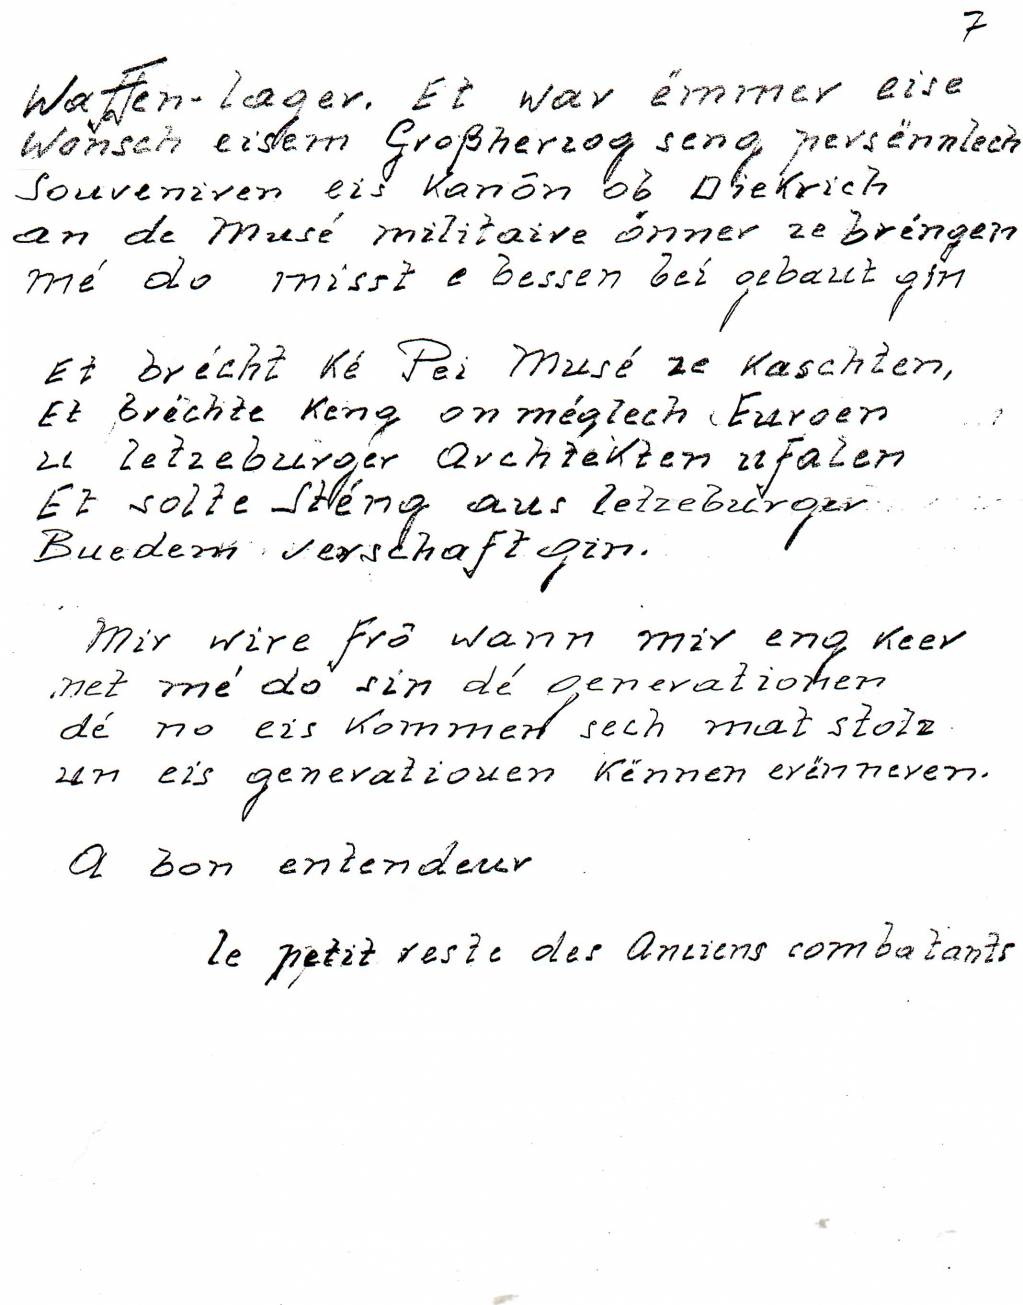 7
Waffen-lager. Et war ëmmer eise
Wonsch eisem Großherzog seng persënnlech
Souveniren eis Kanôn ob Diekrich
an de Musé militaire ónner ze bréngen
mé do misst e bessen bei gebaut gin
Et brécht Ké Pei Musé ze Kaschten,
Et bréchte Keng onméglech Euroen
u letzeburger Archtékten ufalen
Et solte Sténg aus letzeburger
Buedem verschaft gin.
Mir wire frô wann mir eng Keer
net mé do sin dé generationen
dé no eis Kommen sech mat stolz
un eis generatiouen Kënnen erënneren.
A bon entendeur
le petit reste des Anciens combatants